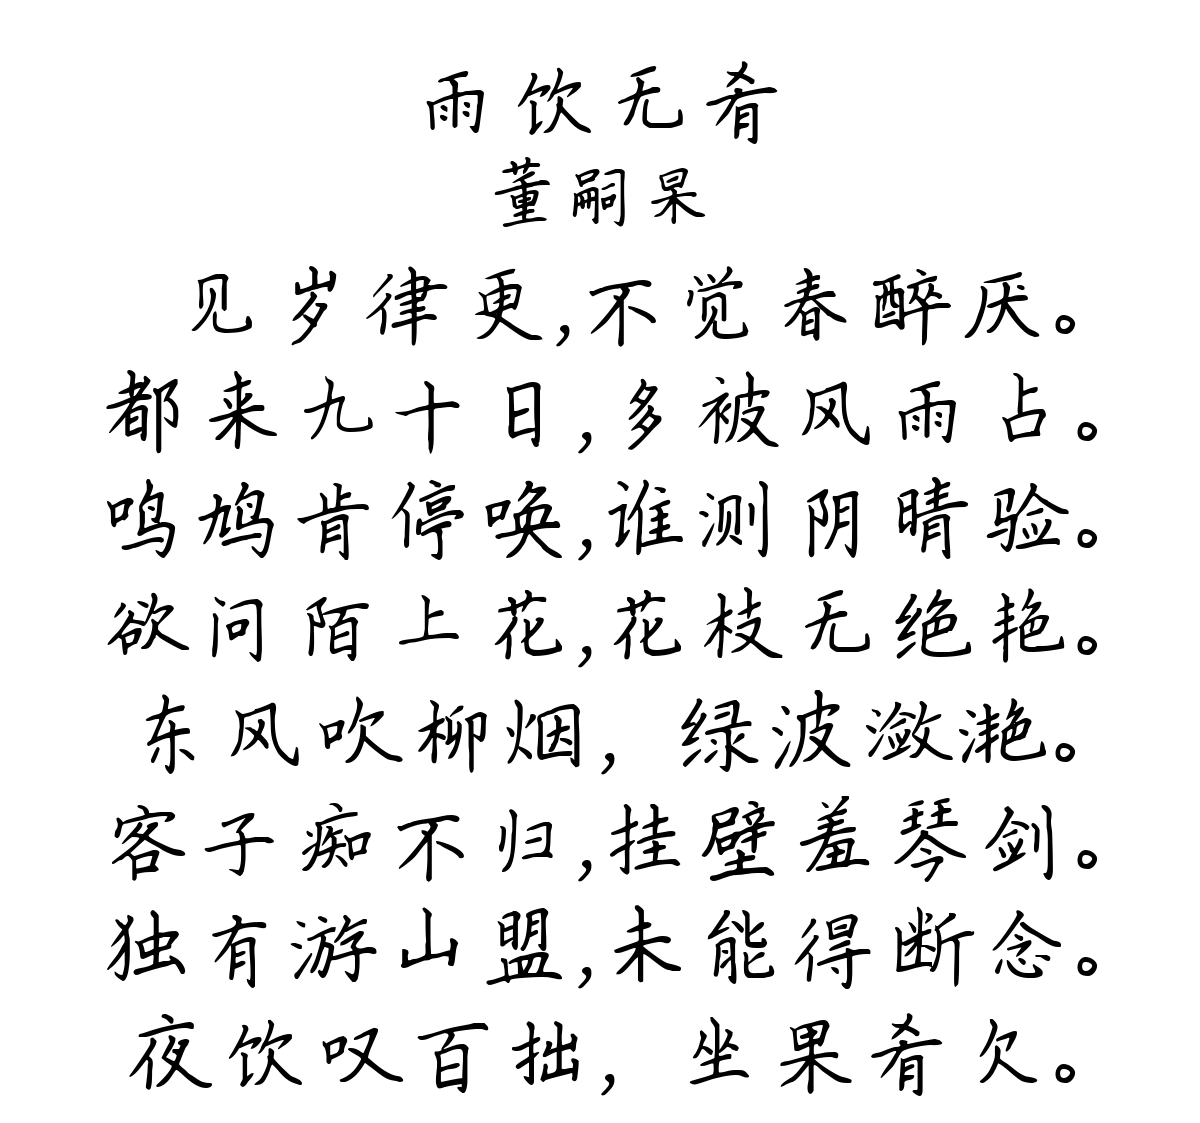 雨饮无肴
董嗣杲
见岁律更,不觉春醉厌。
都来九十日,多被风雨占。
鸣鸠肯停唤,谁测阴晴验。
欲问陌上花,花枝无绝艳。
东风吹柳烟，绿波潋滟。
客子痴不归,挂壁羞琴剑。
独有游山盟,未能得断念。
夜饮叹百拙，坐果肴欠。